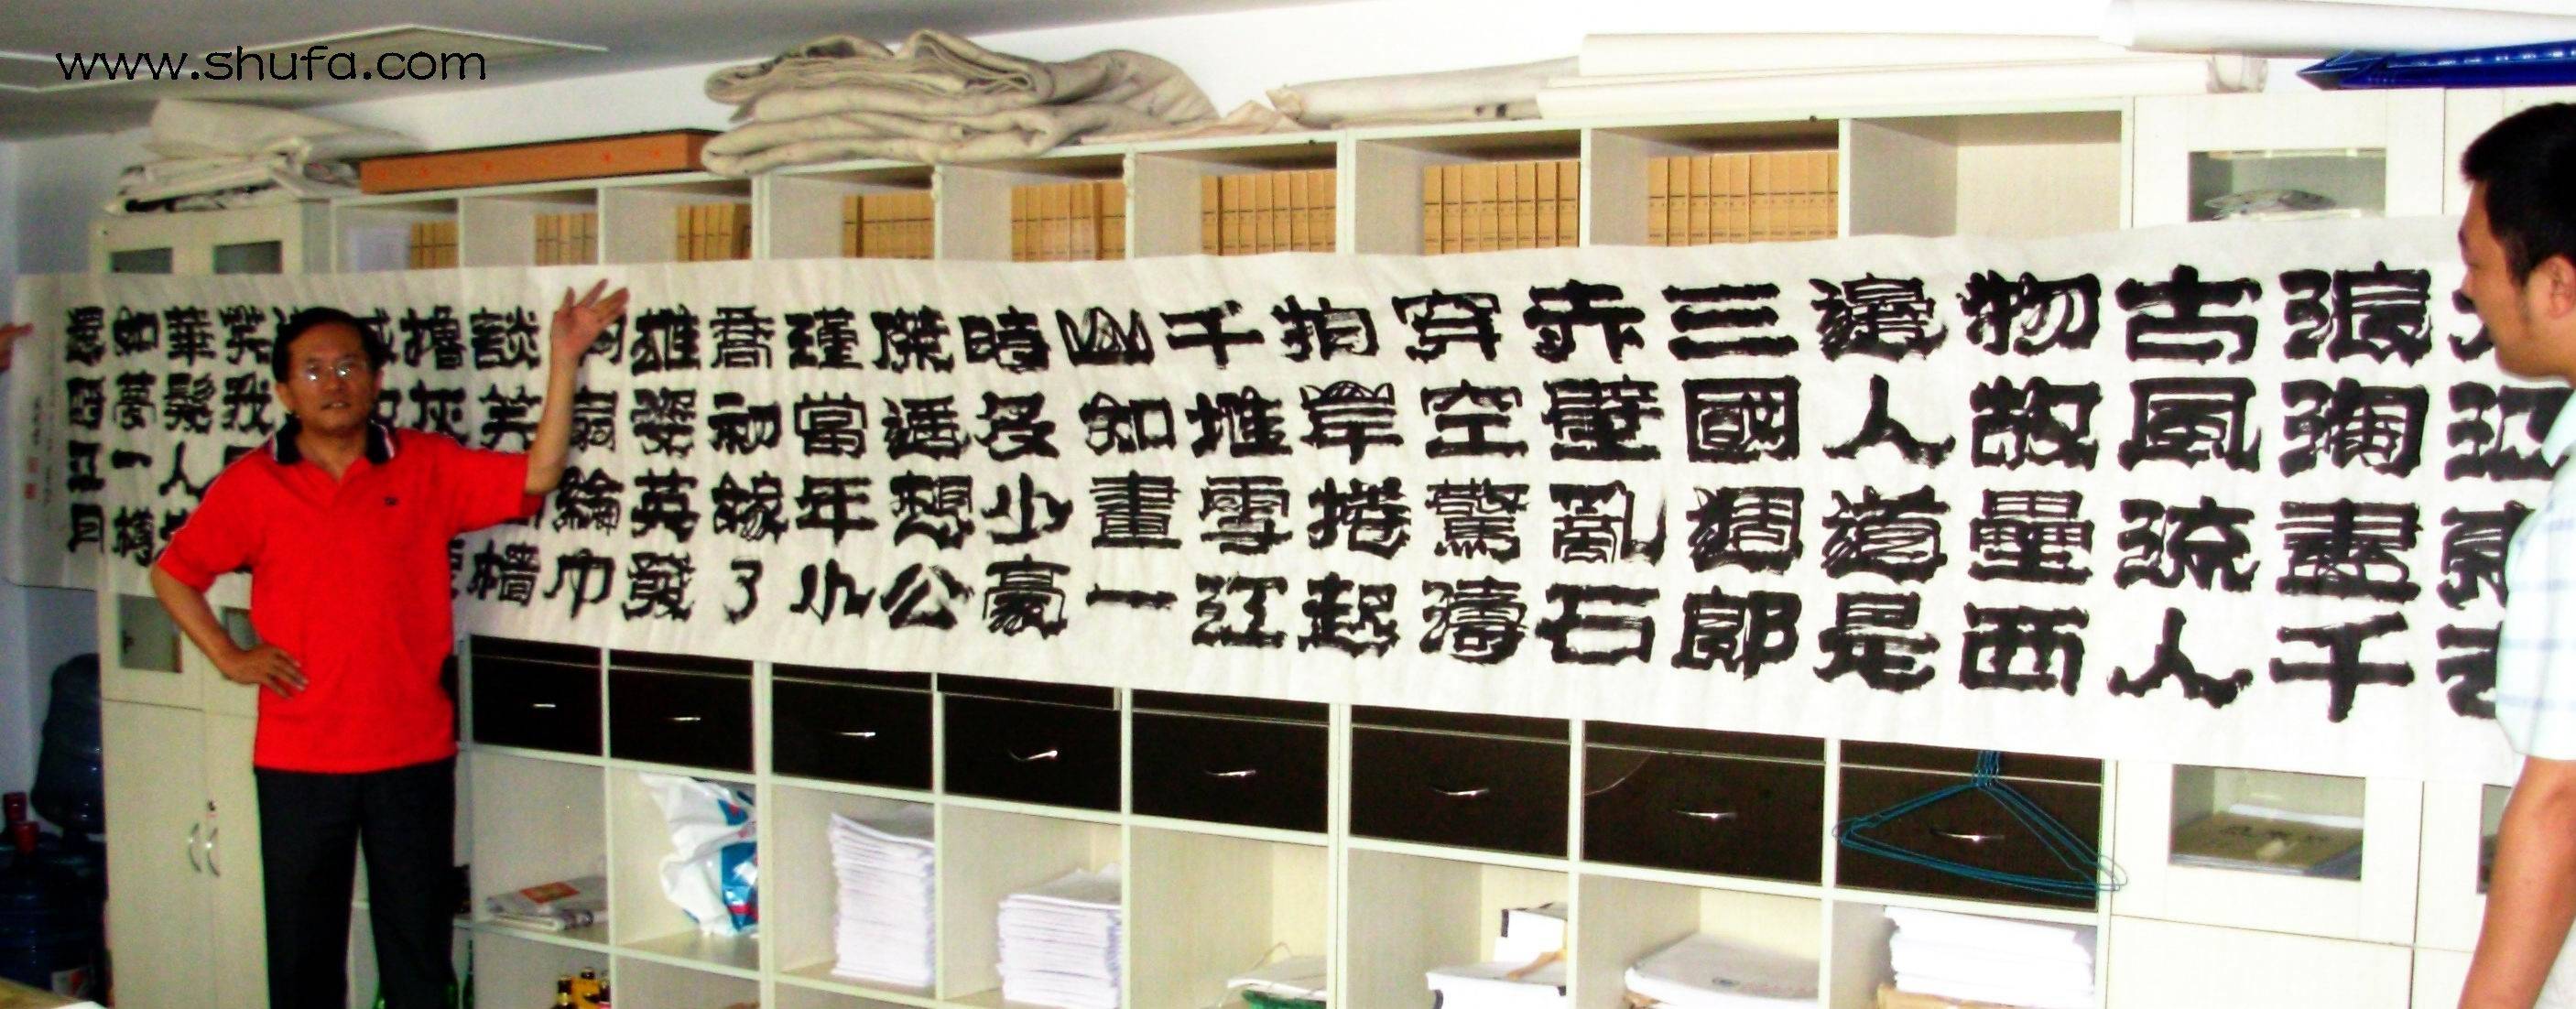 www.shufa.com
江東去
浪淘盡千
古風流人
物故壘西
邊人道是
三國周郎
赤壁亂石
穿空驚濤
拍岸捲起
千堆雪江
山如畫一
時多少豪
傑遙想公
瑾當年小
喬初嫁了
雄姿英發
扇綸巾
談笑檣
櫓灰
滅
笑我
華髮人
如夢一樽
還酹江月